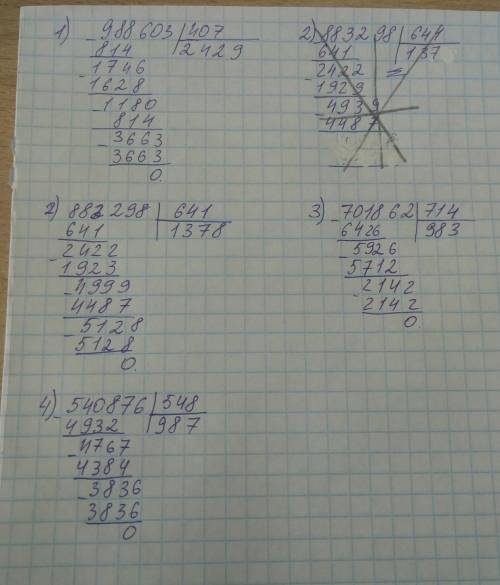 1) 988603 | 407
814 2429
1746
1628
1180
814
3663
3663
0.
2) 883298 | 644
641 137
2422
1929
4939
4487
2) 883298 | 641
641 1378
2422
1923
4999
4487
5128
5128
0.
3) 701862 | 714
6426 983
5926
5712
2142
2142
0.
4) 540876 | 548
4932 987
4767
4384
3836
3836
0